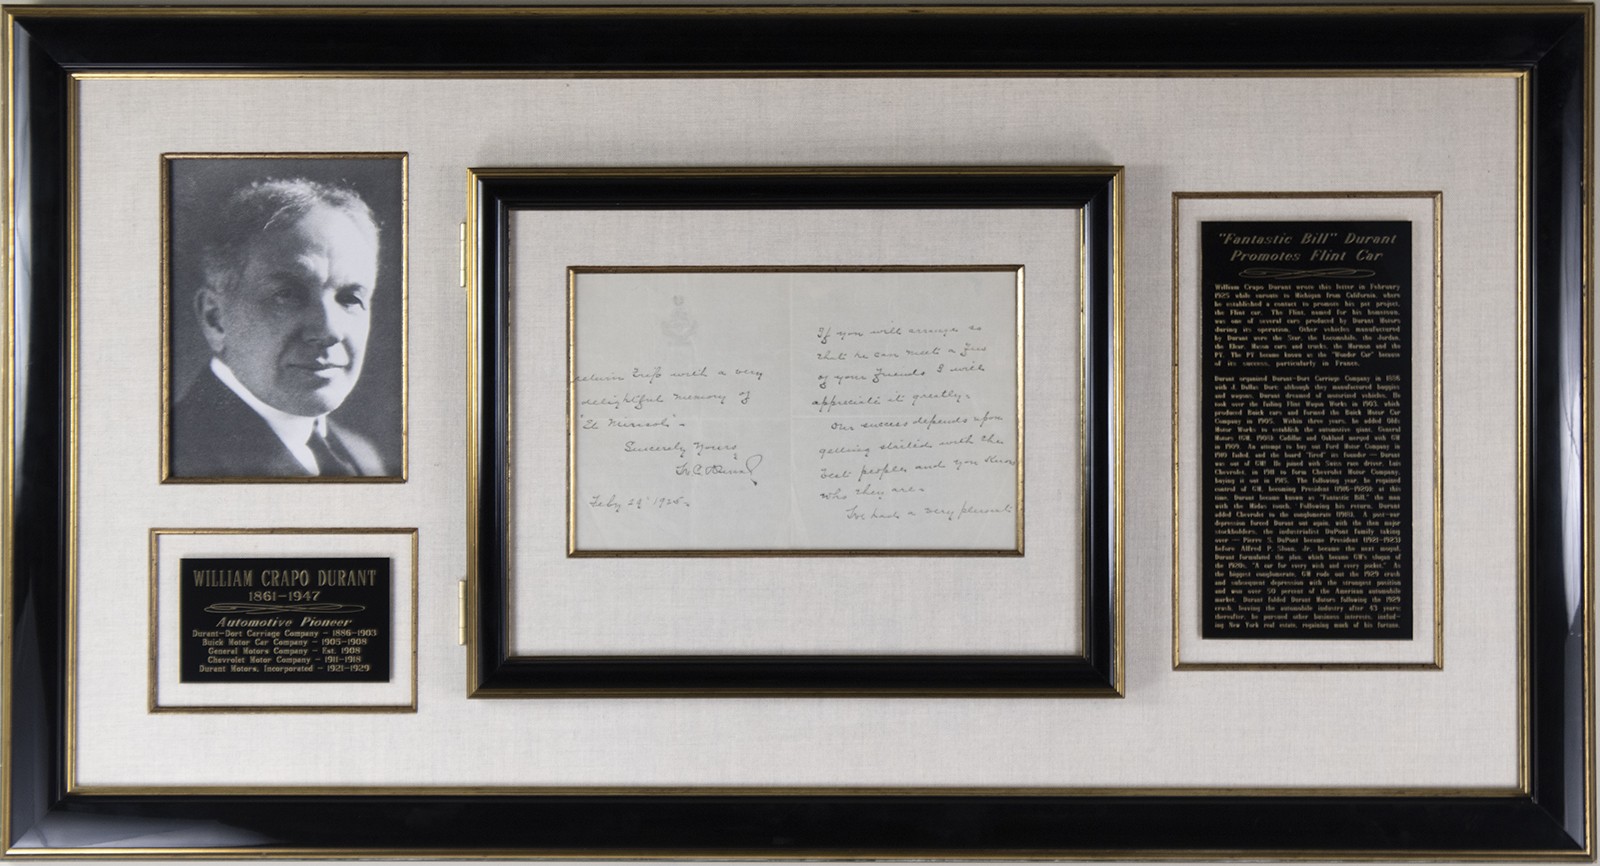 WILLIAM CRAPO DURANT
1861–1947
Automotive Pioneer
Durant-Dort Carriage Company – 1886-1903
Buick Motor Car Company – 1905-1908
General Motors Company – Est. 1908
Chevrolet Motor Company – 1911-1918
Durant Motors, Incorporated – 1921-1929
return trip with a very
delightful memory of
"El Mirasol" –
Sincerely Yours
W C Durant
Feby 29" 1925.
If you will arrange so
that he can meet a few
of your friends I will
appreciate it greatly.
Our success depends upon
getting started with the
best people and you know
who they are.
I've had a very pleasant
"Fantastic Bill" Durant
Promotes Flint Car
William Crapo Durant wrote this letter in February
1925 while enroute to Michigan from California, where
he established a contact to promote his pet project,
the Flint car. The Flint, named for his hometown,
was one of several cars produced by Durant Motors
during its operation. Other vehicles manufactured
by Durant were the Star, the Locomobile, the Jordan,
the Elcar, Mason cars and trucks, the Marmon and the
PT. The PT became known as the "Wonder Car" because
of its success, particularly in France.
Durant organized Durant-Dort Carriage Company in 1886
with J. Dallas Dort; although they manufactured buggies
and wagons, Durant dreamed of motorized vehicles. He
took over the failing Flint Wagon Works in 1903, which
produced Buick cars and formed the Buick Motor Car
Company in 1905. Within three years, he added Olds
Motor Works to establish the automotive giant, General
Motors (GM, 1908); Cadillac and Oakland merged with GM
in 1909. An attempt to buy out Ford Motor Company in
1910 failed, and the board "fired" its founder — Durant
was out of GM! He joined with Swiss race driver, Luis
Chevrolet, in 1911 to form Chevrolet Motor Company,
buying it out in 1915. The following year, he regained
control of GM, becoming President (1916-1920); at this
time, Durant became known as "Fantastic Bill," the man
with the Midas touch. Following his return, Durant
added Chevrolet to the conglomerate (1918). A post-war
depression forced Durant out again, with the then major
stockholders, the industrialist DuPont family taking
over — Pierre S. DuPont became President (1921-1923)
before Alfred P. Sloan, Jr. became the next mogul.
Durant formulated the plan, which became GM's slogan of
the 1920s, "A car for every wish and every pocket." As
the biggest conglomerate, GM rode out the 1929 crash
and subsequent depression with the strongest position
and won over 50 percent of the American automobile
market. Durant folded Durant Motors following the 1929
crash, leaving the automobile industry after 43 years;
thereafter, he pursued other business interests, includ-
ing New York real estate, regaining much of his fortune.